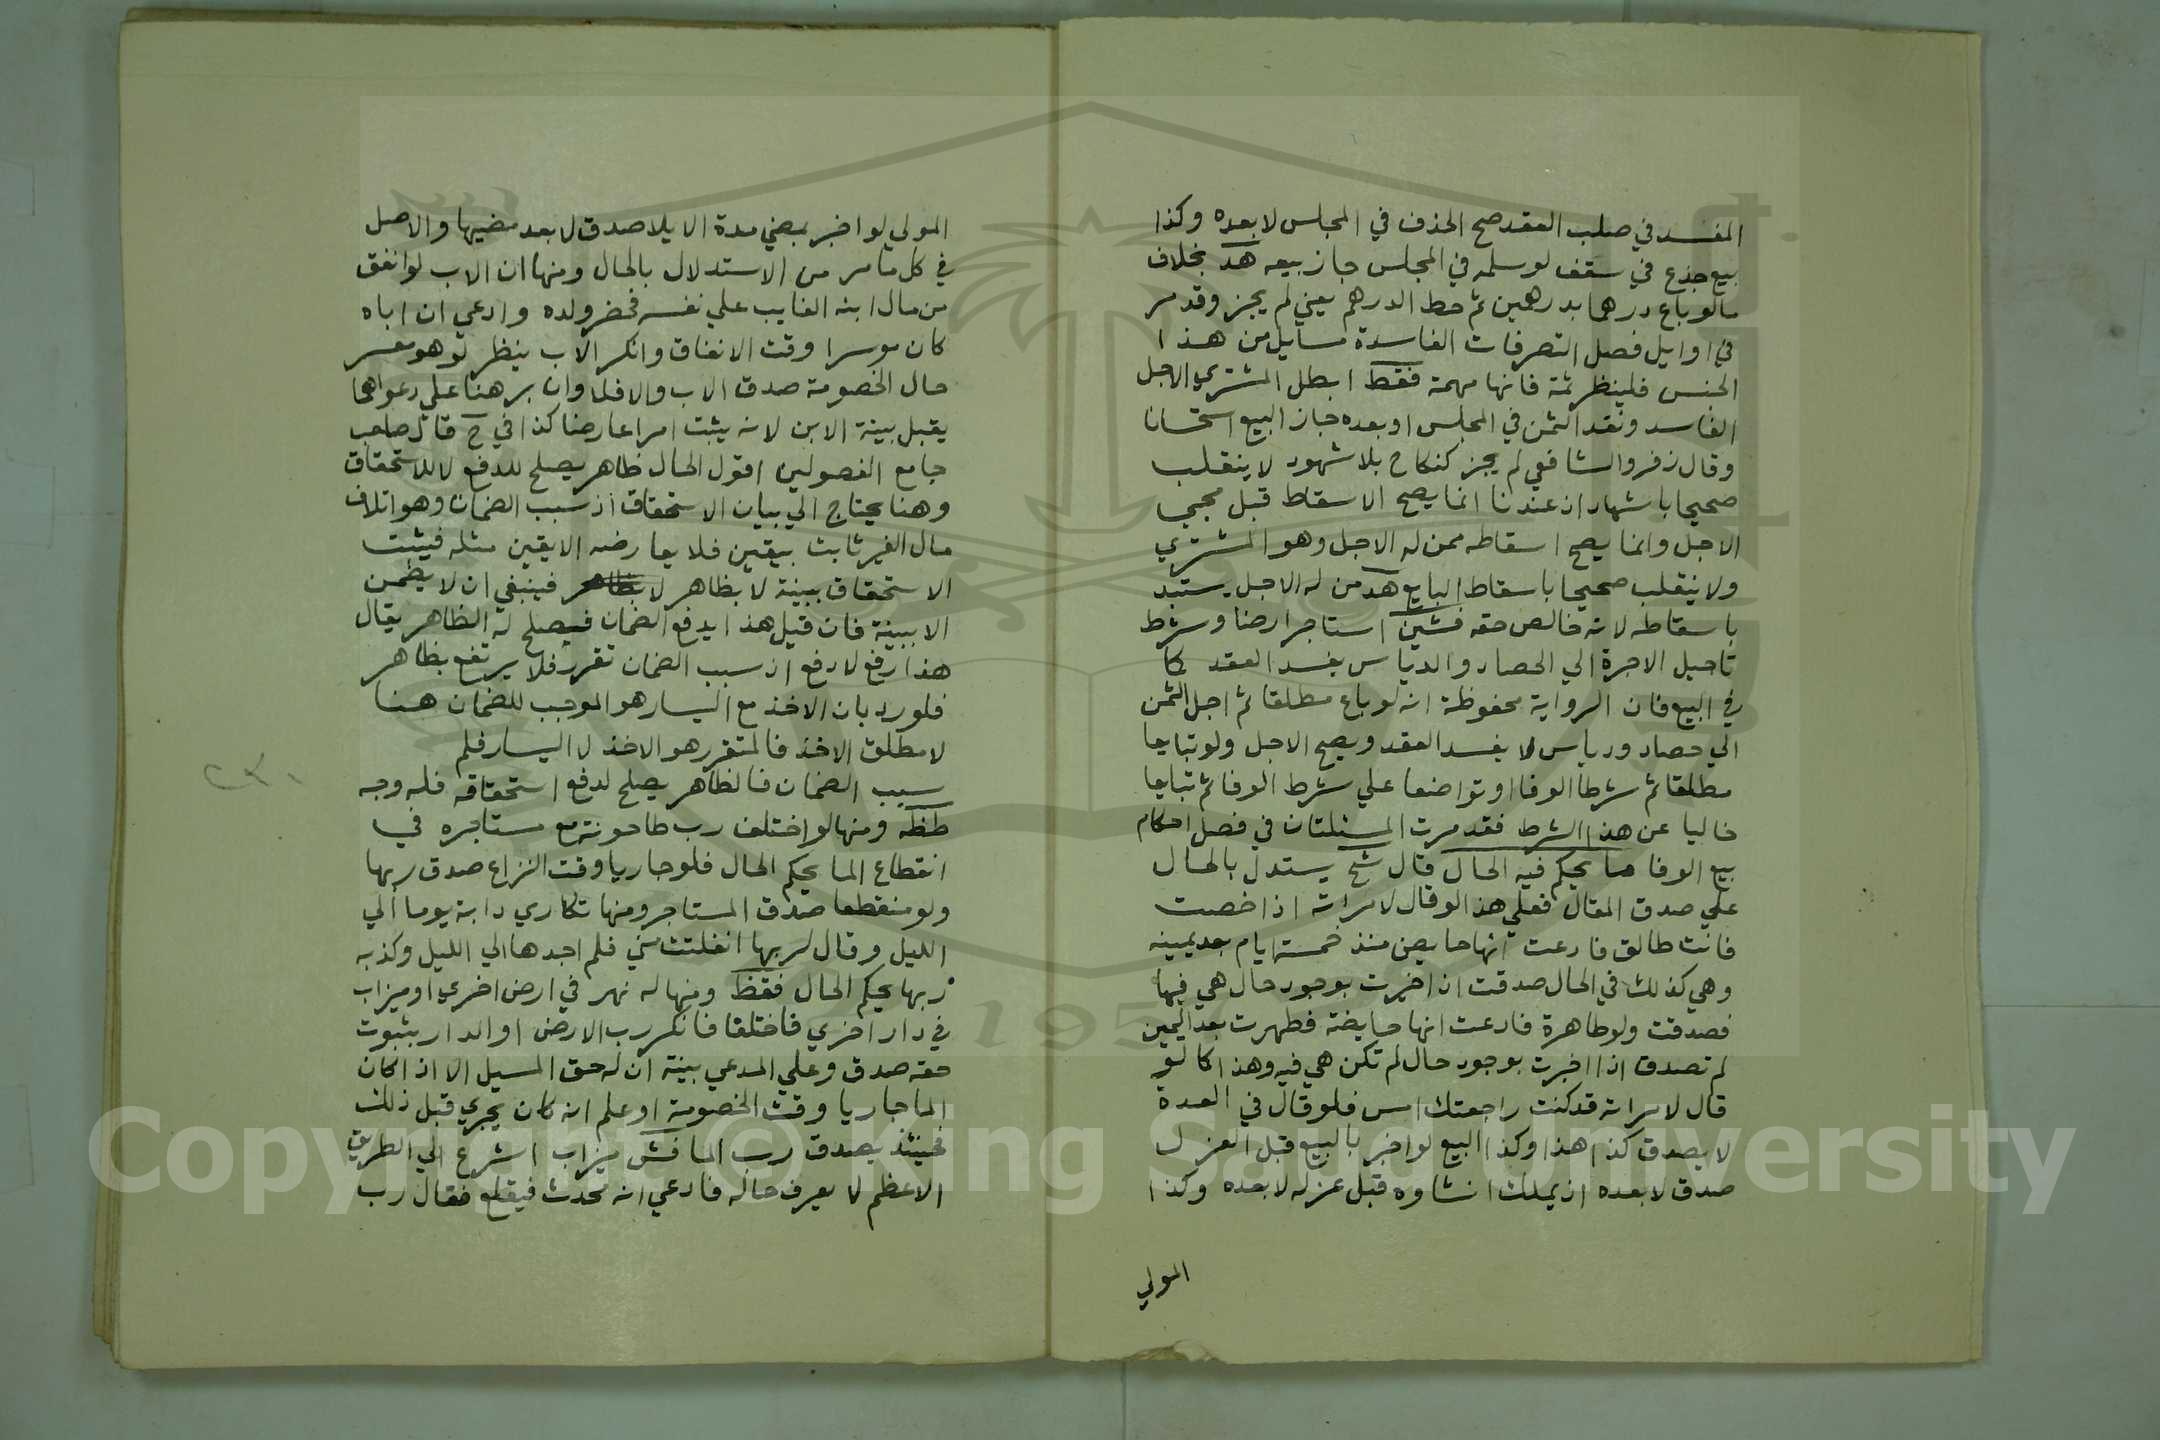 المفسد في صلب العقد صح الحذف في المجلس لا بعده وكذا
بيع جذع في سقف لو سلمه في المجلس جاز بيعه هد بخلاف
ما لو باع درهما بدرهمين ثم حط الدرهم يعني لم يجز وقد مر
في اوايل فصل التصرفات الفاسدة مسايل من هذا
الجنس فلينظر ثمة فانها مهمة فقط ابطل المشتري الاجل
الفاسد ونقد الثمن في المجلس او بعده جاز البيع استحسانا
وقال زفر والشافعي لم يجز كنكاح بلا شهود لا ينقلب
صحيحا باشهاد ان عندنا انما يصح الاسقاط قبل مجي
الاجل وانما يصح اسقاطه ممن له الاجل وهو المشتري
ولا ينقلب صحيحا باسقاط البايع هد من له الاجل يستبد
باسقاطه لانه خالص حقه فشين استاجر ارضا وشرط
تاجيل الاجرة الي الحصاد والدياس يفسد العقد كما
في البيع فان الرواية محفوظة انه لو باع مطلقا ثم اجل الثمن
الي حصاد ودياس لا يفسد العقد ويصح الاجل ولو تبايعا
مطلقا ثم شرطا الوفا او تواضعا علي شرط الوفا ثم تبايعا
خاليا عن هذا الشرط فقد مرت المسئلتان في فصل احكام
بيع الوفا ما يحكم فيه الحال قال شخ يستدل بالحال
علي صدق المقال فعلي هذا لو قال لامراته اذا حضت
فانت طالق فادعت انها حايض منذ خمسة ايام بعد يمينه
وهي كذلك في الحال صدقت ان اخبرت بوجود حال هي فيها
فصدقت ولو طاهرة فادعت انها حايضة فطهرت بعد اليمين
لم تصدق اذا اخبرت بوجود حال لم تكن هي فيه وهذا كما لو
قال لامراته قد كنت راجعتك امس فلو قال في العدة
لا يصدق كذا هذا وكذا البيع لو اخبر بالبيع قبل العزل
صدق لا بعده اذ يملك انشاوه قبل عزله لا بعده وكذا
المولي
المولي لو اخبر بمضي مدة الايلا صدق لا بعد مضيها والاصل
في كل ما مر من الاستدلال بالحال ومنها ان الاب لو انفق
من مال ابنه الغايب علي نفسه فحضر ولده وادعي ان اباه
كان موسرا وقت الانفاق وانكر الاب ينظر لو هو معسر
حال الخصومة صدق الاب والا فلا وان برهنا علي دعواهما
يقبل بينة الابن لانه يثبت امرا عارضا كذا في ج قال صاحب
جامع الفصولين اقول الحال ظاهر يصلح للدفع لا للاستحقاق
وهنا يحتاج الي بيان الاستحقاق اذ سبب الضمان وهو اتلاف
مال الغير ثابت بيقين فلا يعارضه الا يقين مثله فيثبت
الاستحقاق ببينة لا بظاهر لا بظاهر فينبغي ان لا يضمن
الا ببينة فان قيل هذا يدفع الضمان فيصلح له الظاهر يقال
هذا رفع لا دفع اذ سبب الضمان تقرر فلا يرتفع بظاهر
فلو رد بان الاخذ مع اليسار هو الموجب للضمان هنا
لا مطلق الاخذ فالمتقرر هو الاخذ لا اليسار فلم
سبب الضمان فالظاهر يصلح لدفع استحقاقه فله وجه
طظه ومنها لو اختلف رب طاحونة مع مستاجره في
انقطاع الما يحكم الحال فلو جاريا وقت النزاع صدق ربها
ولو منقطعا صدق المستاجر ومنها تكاري دابة يوما الي
الليل وقال لربها انفلتت مني فلم اجدها الي الليل وكذبه
ربها يحكم الحال فقظ ومنها له نهر في ارض اخري او ميزاب
في دار اخري فاختلفا فانكر رب الارض او الدار بثبوت
حقه صدق وعلي المدعي بينة ان له حق المسيل الا اذا كان
الما جاريا وقت الخصومة او علم انه كان يجري قبل ذلك
فحينئذ يصدق رب الما فش ميزاب اشرع الي الطريق
الاعظم لا يعرف حاله فادعي انه محدث فيقلع فقال رب
٢٣٠
Copyright © King Saud University
1957